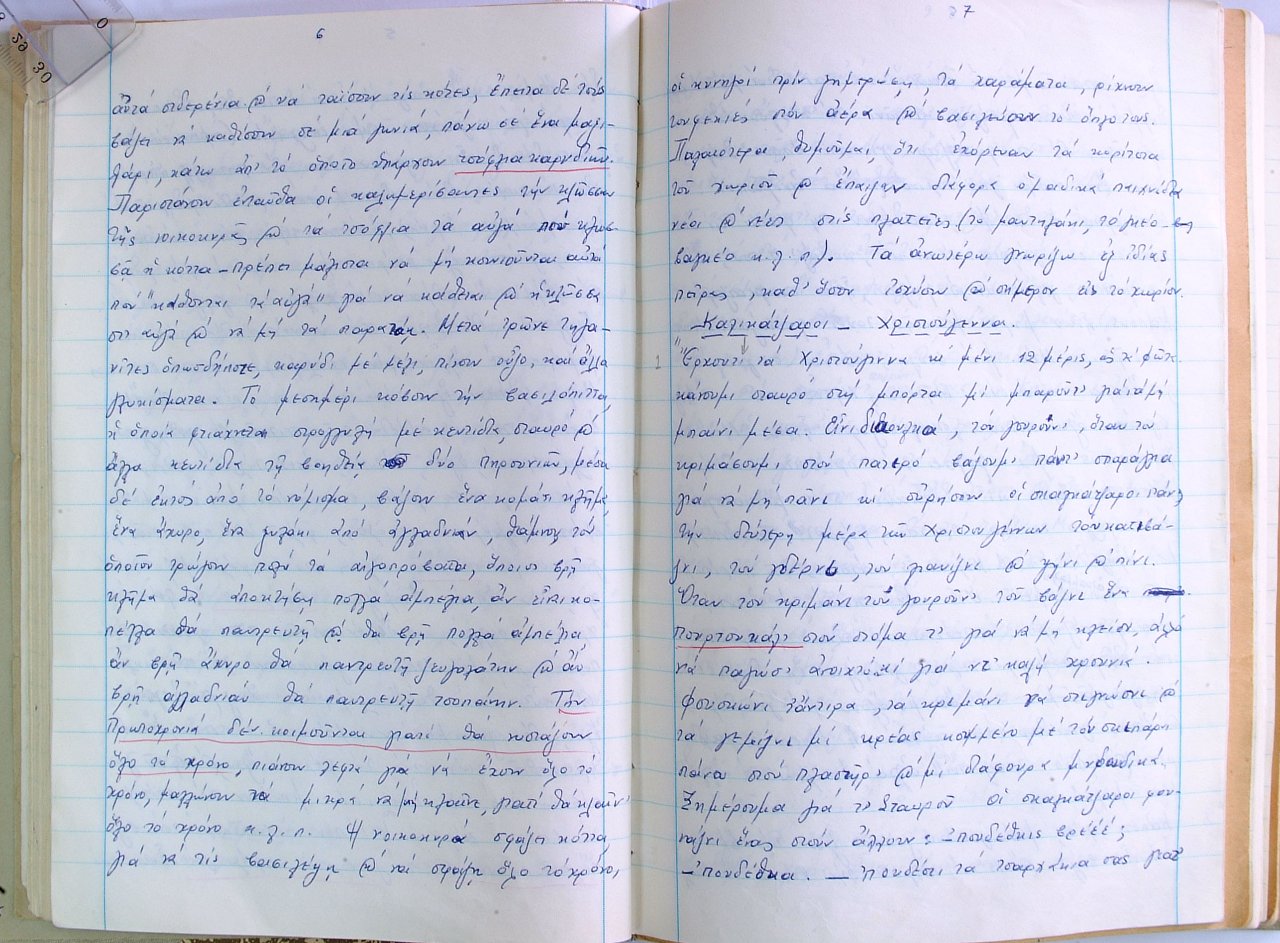 6
αὐτά σιδερένια @ νά ταΐσουν τίς κότες, ἔπειτα δέ τούς
βάζει νά καθίσουν σέ μιά γωνιά πάνω σέ ἕνα μαξι-
λάρι, κάτω ἀπ' τό ὁποῖο ὑπάρχουν τσόφλια καρυδιῶν.
Παριστάνουν ἐνταῦθα οἱ καλημερίσαντες τήν κλῶσσαν
τῆς νοικοκυρᾶς @ τά τσόφλια τά αὐγά πού κλωσ-
σᾶ ἡ κόττα - πρέπει μάλιστα νά μή κουνιοῦνται αὐτά
πού "κάθονται τ' αὐγά" γιά νά κάθεται @ ἡ κλῶσσα
στ' αὐγά @ νά μή τά παρατάη. Μετά τρῶνε τηγα-
νίτες ὁπωσδήποτε, καρύδι μέ μέλι, πίνουν οὖζο, καί ἄλλα
γλυκίσματα. Τό μεσημέρι κόβουν τήν βασιλόπιττα,
ἡ ὁποία φτιάχνεται στρογγυλή μέ κεντίδια, σταυρό @
ἄλλα κεντίδια τῇ βοηθείᾳ δύο πηρουνιῶν, μέσα
δέ ἐκτός ἀπό τό νόμισμα, βάζουν ἕνα κομάτι κλῆμα,
ἕνα ἄχυρο, ἕνα ξυλάκι ἀπό ἀγλαδνιάν, θάμνος τόν
ὁποῖον τρώγουν πολύ τά αἰγοπρόβατα, ὅποιος βρῆ
κλῆμα θά ἀποκτήση πολλά ἀμπέλια, ἄν εἶναι κο-
πέλλα θά παντρευτῆ @ θά βρῆ πολλά ἀμπέλια
ἄν βρῆ ἄχυρο θα παντρευτῆ ζευγολάτην @ ἄν
βρῆ ἀγλαδνιάν θά παντρευτῆ τσοπάνην. Τήν
Πρωτοχρονιά δέν κοιμοῦνται γιατί θά νυστάζουν
ὅλο τό χρόνο, πιάνουν λεφτά γιά νά ἔχουν ὅλο τό
χρόνο, μαλλώνουν τά μικρά νά μή κλαῖνε, γιατί θά κλαῖνε
ὅλο τό χρόνο κ.λ.π. Ἡ νοικοκυρά σφάζει κόττα
γιά νά τίς βασιλέψη @ νά σφάζη ὅλο τό χρόνο,
7
οἱ κυνηγοί πρίν ξημερώση, τά χαράματα, ρίχνουν
τουφεκιές στόν ἀέρα @ βασιλεύουν τό ὅπλο τους.
Παλαιότερα, θυμοῦμαι, ὅτι ἐχόρευαν τά κορίτσια
τοῦ χωριοῦ @ ἔπαιζαν διάφορα ὁμαδικά παιχνίδια
νέοι @ νέες στίς πλατεῖες (τό μαντηλάκι,
κ.λ.π). Τά ἀνωτέρω γνωρίζω ἐξ ἰδίας
πείρας, καθ' ὅσον ἰσχύουν @ σήμερον εἰς τό χωρίον.
- Καλικάτζαροι - Χριστούγεννα.
1 "Ἔρχουντι τά Χριστούγεννα κί μένι 12 μέρις, ὡς τ' φῶτα
κάνουμι σταυρό στή μπόρτα μί μπαρούτ' γιά νά μή
μπαίνι μέσα. τόν γουροῦν', ὅταν τό
κριμάσουμι στόν πατερό βάζουμι πάν' σπαράγγια
γιά νά μή πᾶνι κί οἱ σκαλκάτζαροι πάν',
τήν δεύτερη μέρα τῶν Χριστουγέννων τόν κατιβά-
ζνι, τόν γδέρνι, τόν λιανίζνι @ ψήνι @ πίνι.
Ὅταν τόν κριμάνι τοῦ γουροῦν' τοῦ βάζνι ἕνα
πουρτουκάλι στόν στόμα τ' γιά νά μή κλείσι, ἀλλά
νά παγώσ' ἀνοιχτό κί γιά ν' καλή χρουνιά.
Φουσκώνι τ' ἄντιρα, τά κρεμάνι νά στεγνώσνι @
τά γεμίζνι μί κρέας κομμένο μέ τόν σκεπάρη
πάνω στόν πλαστήρ' @ μί διάφουρα μυρωδικά.
Ξημέρουμα γιά τ' Σταυροῦ οἱ σκαλκάτζαροι φου-
νάζνι ἕνας στόν ἄλλουν: - Ἰπουδέθκις βρέέέ;
- Ἰπουδέθκα. - Ἰπουδέσι τά τσαρχάκια σας γιατ'